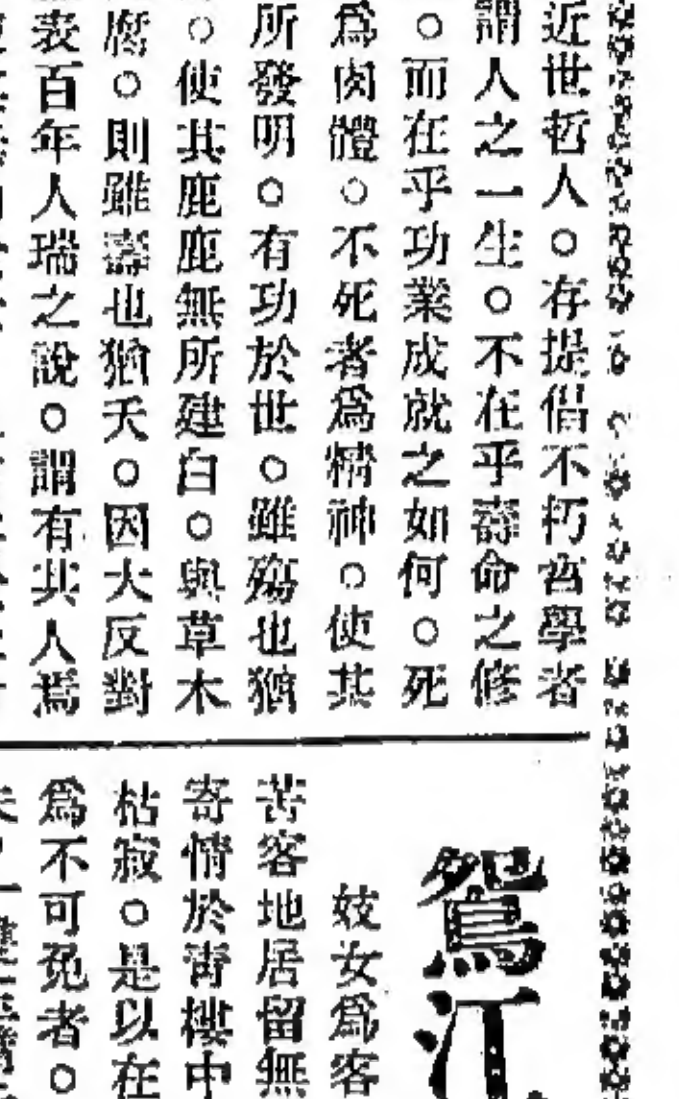 近世哲人。存提倡不朽舍學者
謂人之一生。不在乎壽命之修
。而在乎功業成就之如何。死
爲肉體。不死者爲精神。使其
所發明。有功於世。雖殤也猶
。使其鹿鹿無所建白。與草木
腐。則雖壽也猶夭。因大反對
表百年人瑞之說。謂有其人焉
鴛江
妓女爲客
苦客地居留無
寄情於靑樓中
枯寂。是以在
爲不可免者。